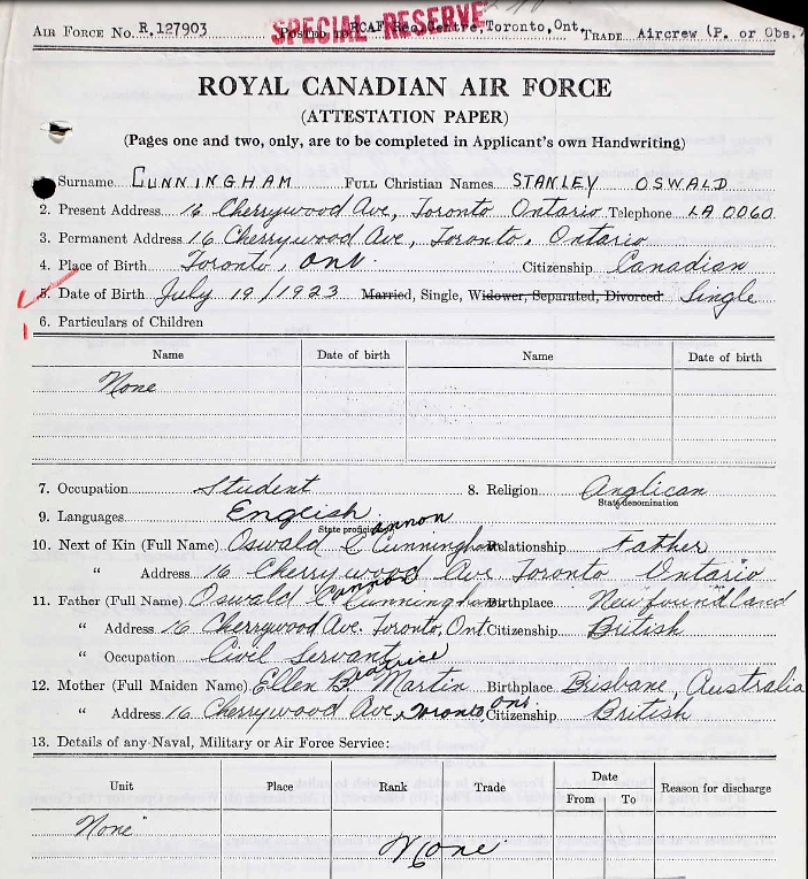 AIR FORCE No. R.127903 SPECIAL RESERVE POSTED TO RCAF Rec. Centre, Toronto, Ont. TRADE Aircrew (P. or Obs.)
ROYAL CANADIAN AIR FORCE
(ATTESTATION PAPER)
(Pages one and two, only, are to be completed in Applicant's own Handwriting)
Surname CUNNINGHAM FULL Christian Names STANLEY OSWALD
2. Present Address 16 Cherrywood Ave, Toronto Ontario Telephone LA 0060
3. Permanent Address 16 Cherrywood Ave, Toronto, Ontario
4. Place of Birth Toronto, Ont. Citizenship Canadian
5. Date of Birth July 19/1923 Married, Single, Widower, Separated, Divorced Single
6. Particulars of Children
Name Date of birth Name Date of birth
None
7. Occupation Student 8. Religion Anglican
State denomination
9. Languages English
State proficiency
annon
10. Next of Kin (Full Name) Oswald C Cunningham Relationship Father
" Address 16 Cherrywood Ave Toronto Ontario
Cannon
11. Father (Full Name) Oswald C Cunningham Birthplace Newfoundland
" Address 16 Cherrywood Ave. Toronto, Ont Citizenship British
" Occupation Civil Servant
eatrice
12. Mother (Full Maiden Name) Ellen B. Martin Birthplace Brisbane, Australia
" Address 16 Cherrywood Ave, Toronto, Ont. Citizenship British
13. Details of any Naval, Military or Air Force Service:
Unit Place Rank Trade Date Reason for discharge
From To
None
None